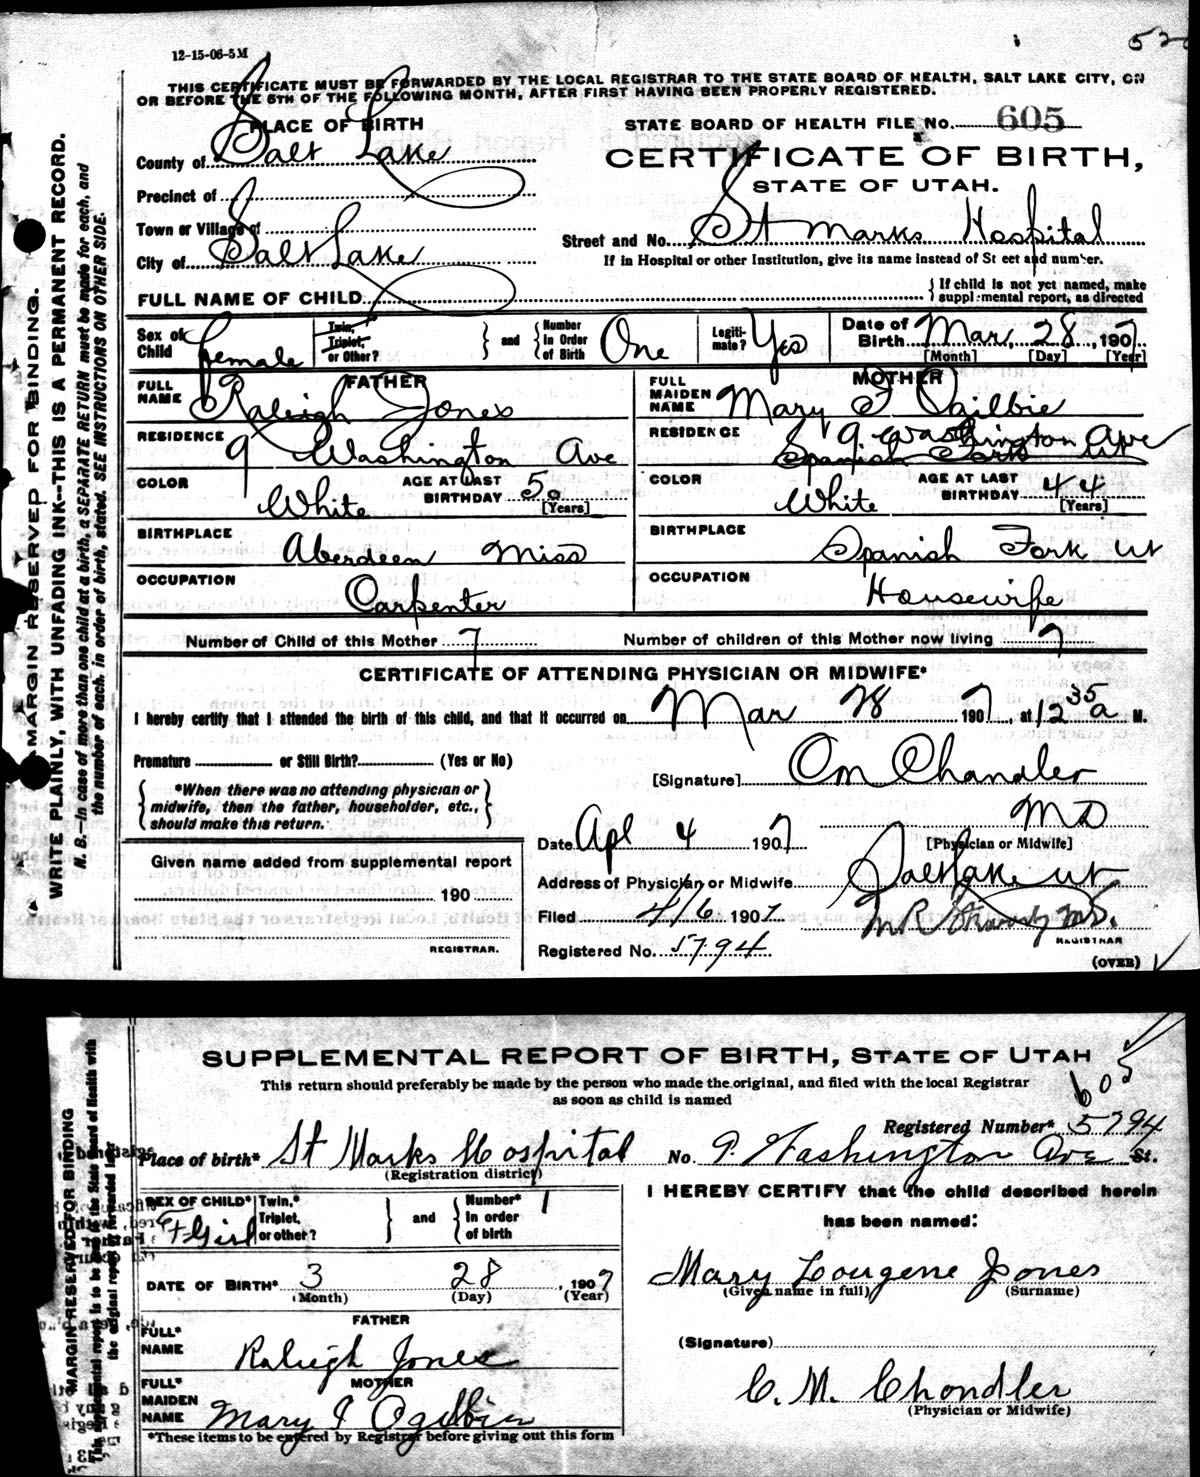 12-15-06-5M
THIS CERTIFICATE MUST BE FORWARDED BY THE LOCAL REGISTRAR TO THE STATE BOARD OF HEALTH, SALT LAKE CITY, ON
OR BEFORE THE 5TH OF THE FOLLOWING MONTH, AFTER FIRST HAVING BEEN PROPERLY REGISTERED.
PLACE OF BIRTH
STATE BOARD OF HEALTH FILE NO. 605
County of Salt Lake
CERTIFICATE OF BIRTH,
STATE OF UTAH.
Precinct of
Town or Village of
Street and No. St Marks Hospital
City of Salt Lake
If in Hospital or other Institution, give its name instead of St eet and number.
FULL NAME OF CHILD
If child is not yet named, make
suppl·mental report, as directed
Sex of Child female
Twin, Triplet, or Other?
and
Number in Order of Birth One
Legiti-mate? Yes
Date of Birth Mar, 28, 1907
[Month] [Day] [Year]
FATHER
FULL NAME Raleigh Jones
MOTHER
FULL MAIDEN NAME Mary F Ogilbie
RESIDENCE 9 Washington Ave
RESIDENCE 9. Washington Ave
Spanish Fork Ut
COLOR White
AGE AT LAST BIRTHDAY 50
[Years]
COLOR White
AGE AT LAST BIRTHDAY 44
[Years]
BIRTHPLACE Aberdeen Miss
BIRTHPLACE Spanish Fork Ut
OCCUPATION Carpenter
OCCUPATION Housewife
Number of Child of this Mother 7
Number of children of this Mother now living 7
CERTIFICATE OF ATTENDING PHYSICIAN OR MIDWIFE*
I hereby certify that I attended the birth of this child, and that it occurred on Mar 28 1907, at 12 35 a M.
Premature or Still Birth? (Yes or No)
[Signature] Om Chandler
MD
[Physician or Midwife]
*When there was no attending physician or
midwife, then the father, householder, etc.,
should make this return.
Date Apl 4 1907
Given name added from supplemental report
190
REGISTRAR.
Address of Physician or Midwife Salt Lake Ut
Filed 4/6 1907
REGISTRAR
Registered No. 5794
(OVER)
MARGIN RESERVED FOR BINDING.
WRITE PLAINLY, WITH UNFADING INK--THIS IS A PERMANENT RECORD.
N. B.—In case of more than one child at a birth, a SEPARATE RETURN must be made for each, and
the number of each, in order of birth, stated. SEE INSTRUCTIONS ON OTHER SIDE.
SUPPLEMENTAL REPORT OF BIRTH, STATE OF UTAH
This return should preferably be made by the person who made the original, and filed with the local Registrar
as soon as child is named
605
Registered Number* 5794
Place of birth* St Marks Hospital No. 9. Washington Ave St.
(Registration district)
SEX OF CHILD* Girl
Twin,* Triplet, or other?
and
Number* in order of birth 1
I HEREBY CERTIFY that the child described herein
has been named:
DATE OF BIRTH* 3 28, 1907
(Month) (Day) (Year)
Mary Lougene Jones
(Given name in full) (Surname)
FATHER
FULL* NAME Raleigh Jones
(Signature)
MOTHER
FULL* MAIDEN NAME Mary F Ogilbie
C. M. Chondler
(Physician or Midwife)
*These items to be entered by Registrar before giving out this form
MARGIN RESERVED FOR BINDING
This supplemental report is to be sent to the State Board of Health with
the original report if named later